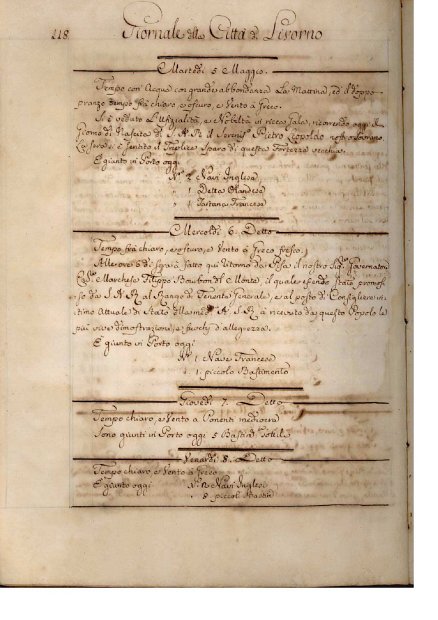 218
Giornale della Città di Livorno
Martedì 5 Maggio.
Tempo con Acqua con grande abbondanza La Mattina, ed il Doppo
pranzo tempo frà chiaro, e oscuro, e Vento à Greco.
Si è veduto L'Ufizialità, e Nobiltà in ricca Gala, ricorrendo oggi il
Giorno di Nascita di S. A. R. il Sereniss. Pietro Leopoldo nostro Sovrano,
e si è sentito il Triplice Sparo di questa Fortezza vecchia.
E giunto in Porto oggi
N.° 2 Navi Inglesi
" 1 Detta Olandese
" 1 Tartana Francese
Mercoldì 6. Detto
Tempo frà chiaro, e oscuro, e Vento à Greco fresco,
Alle ore 6 di sera à fatto qui Ritorno da Pisa il nostro Sig. Governatore
Marchese Filippo Bourbon del Monte, il quale essendo stato promos=
so da S. A. R. al Rango di Tenente Generale, e al posto di Consigliere in=
timo Attuale di Stato di S. A. R. à ricevuto da questo Popolo le
più vive dimostrazioni, e d'allegrezza.
E giunto in Porto oggi
N.° 1 Nave Francese
" 1. piccolo Bastimento
Giovedì 7. Detto
Tempo chiaro, e Vento à Ponente mediocre
Sono giunti in Porto oggi 5 Bastim. Sottili
Venerdì 8. Detto
Tempo chiaro, e Vento à Greco
E giunto oggi N.° 2 Navi Inglesi
" 8 piccoli Bastim